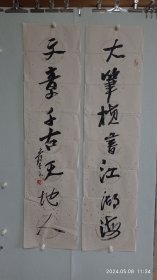 大笔横书江湖海
文章千古天地人
2024.05.08 11:34